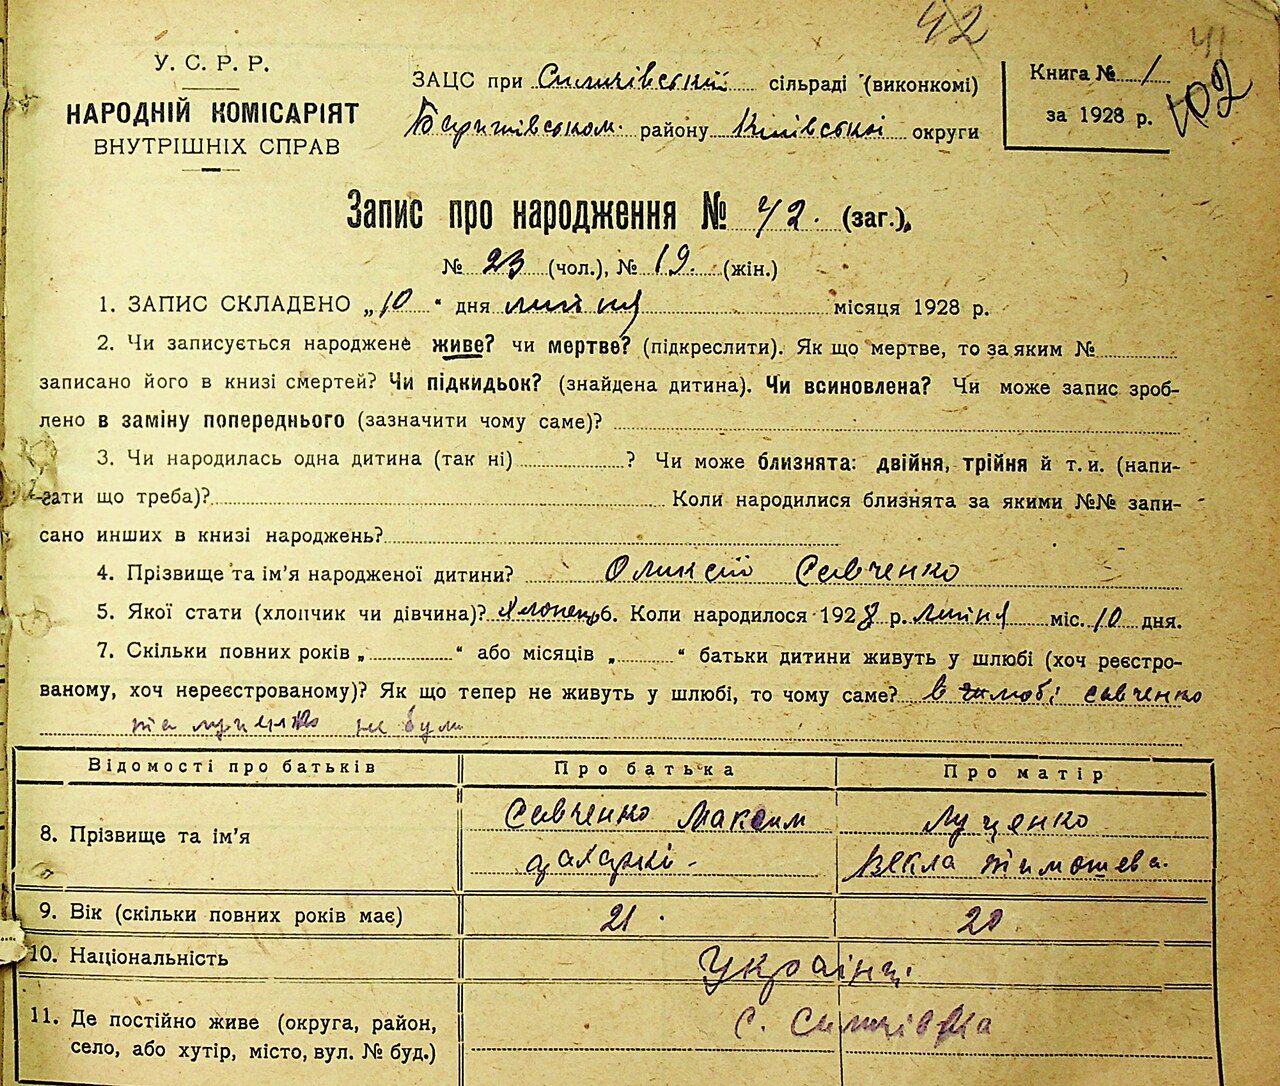 42
41
102
У. С. Р. Р.
НАРОДНІЙ КОМІСАРІЯТ
ВНУТРІШНІХ СПРАВ
ЗАЦС при сільраді (виконкомі)
району Київської округи
Книга № 1
за 1928 р.
Запис про народження № 42. (заг.).
№ 23 (чол.), № 19. (жін.)
1. ЗАПИС СКЛАДЕНО „10" дня липня місяця 1928 р.
2. Чи записується народжене живе? чи мертве? (підкреслити). Як що мертве, то за яким №
записано його в книзі смертей? Чи підкидьок? (знайдена дитина). Чи всиновлена? Чи може запис зроб-
лено в заміну попереднього (зазначити чому саме)?
3. Чи народилась одна дитина (так ні) ? Чи може близнята: двійня, трійня й т. и. (напи-
сати що треба)? Коли народилися близнята за якими №№ запи-
сано инших в книзі народжень?
4. Прізвище та ім'я народженої дитини? Оликсій Савченко
5. Якої стати (хлопчик чи дівчина)? хлопець 6. Коли народилося 1928 р. липня міс. 10 дня.
7. Скільки повних років „ " або місяців „ " батьки дитини живуть у шлюбі (хоч реєстро-
ваному, хоч нереєстрованому)? Як що тепер не живуть у шлюбі, то чому саме? в шлюбі савченко
та луценко не були
Відомості про батьків Про батька Про матір
8. Прізвище та ім'я Савченко Максим Луценко
Векла Тимошева.
9. Вік (скільки повних років має) 21. 20
10. Національність Українці
11. Де постійно живе (округа, район, с.
село, або хутір, місто, вул. № буд.)